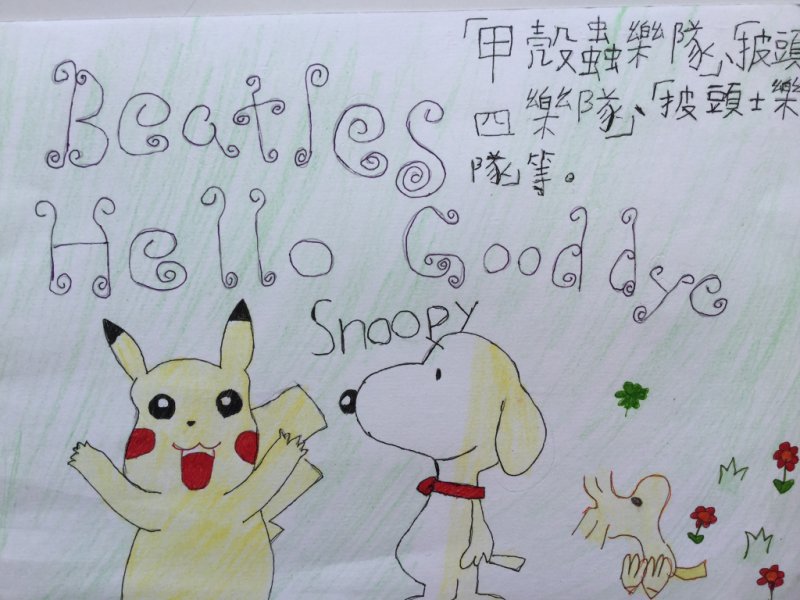 「甲殼蟲樂隊」、「披頭
四樂隊」、「披頭士樂
隊」等。
Beatles
Hello Good dye
Snoopy